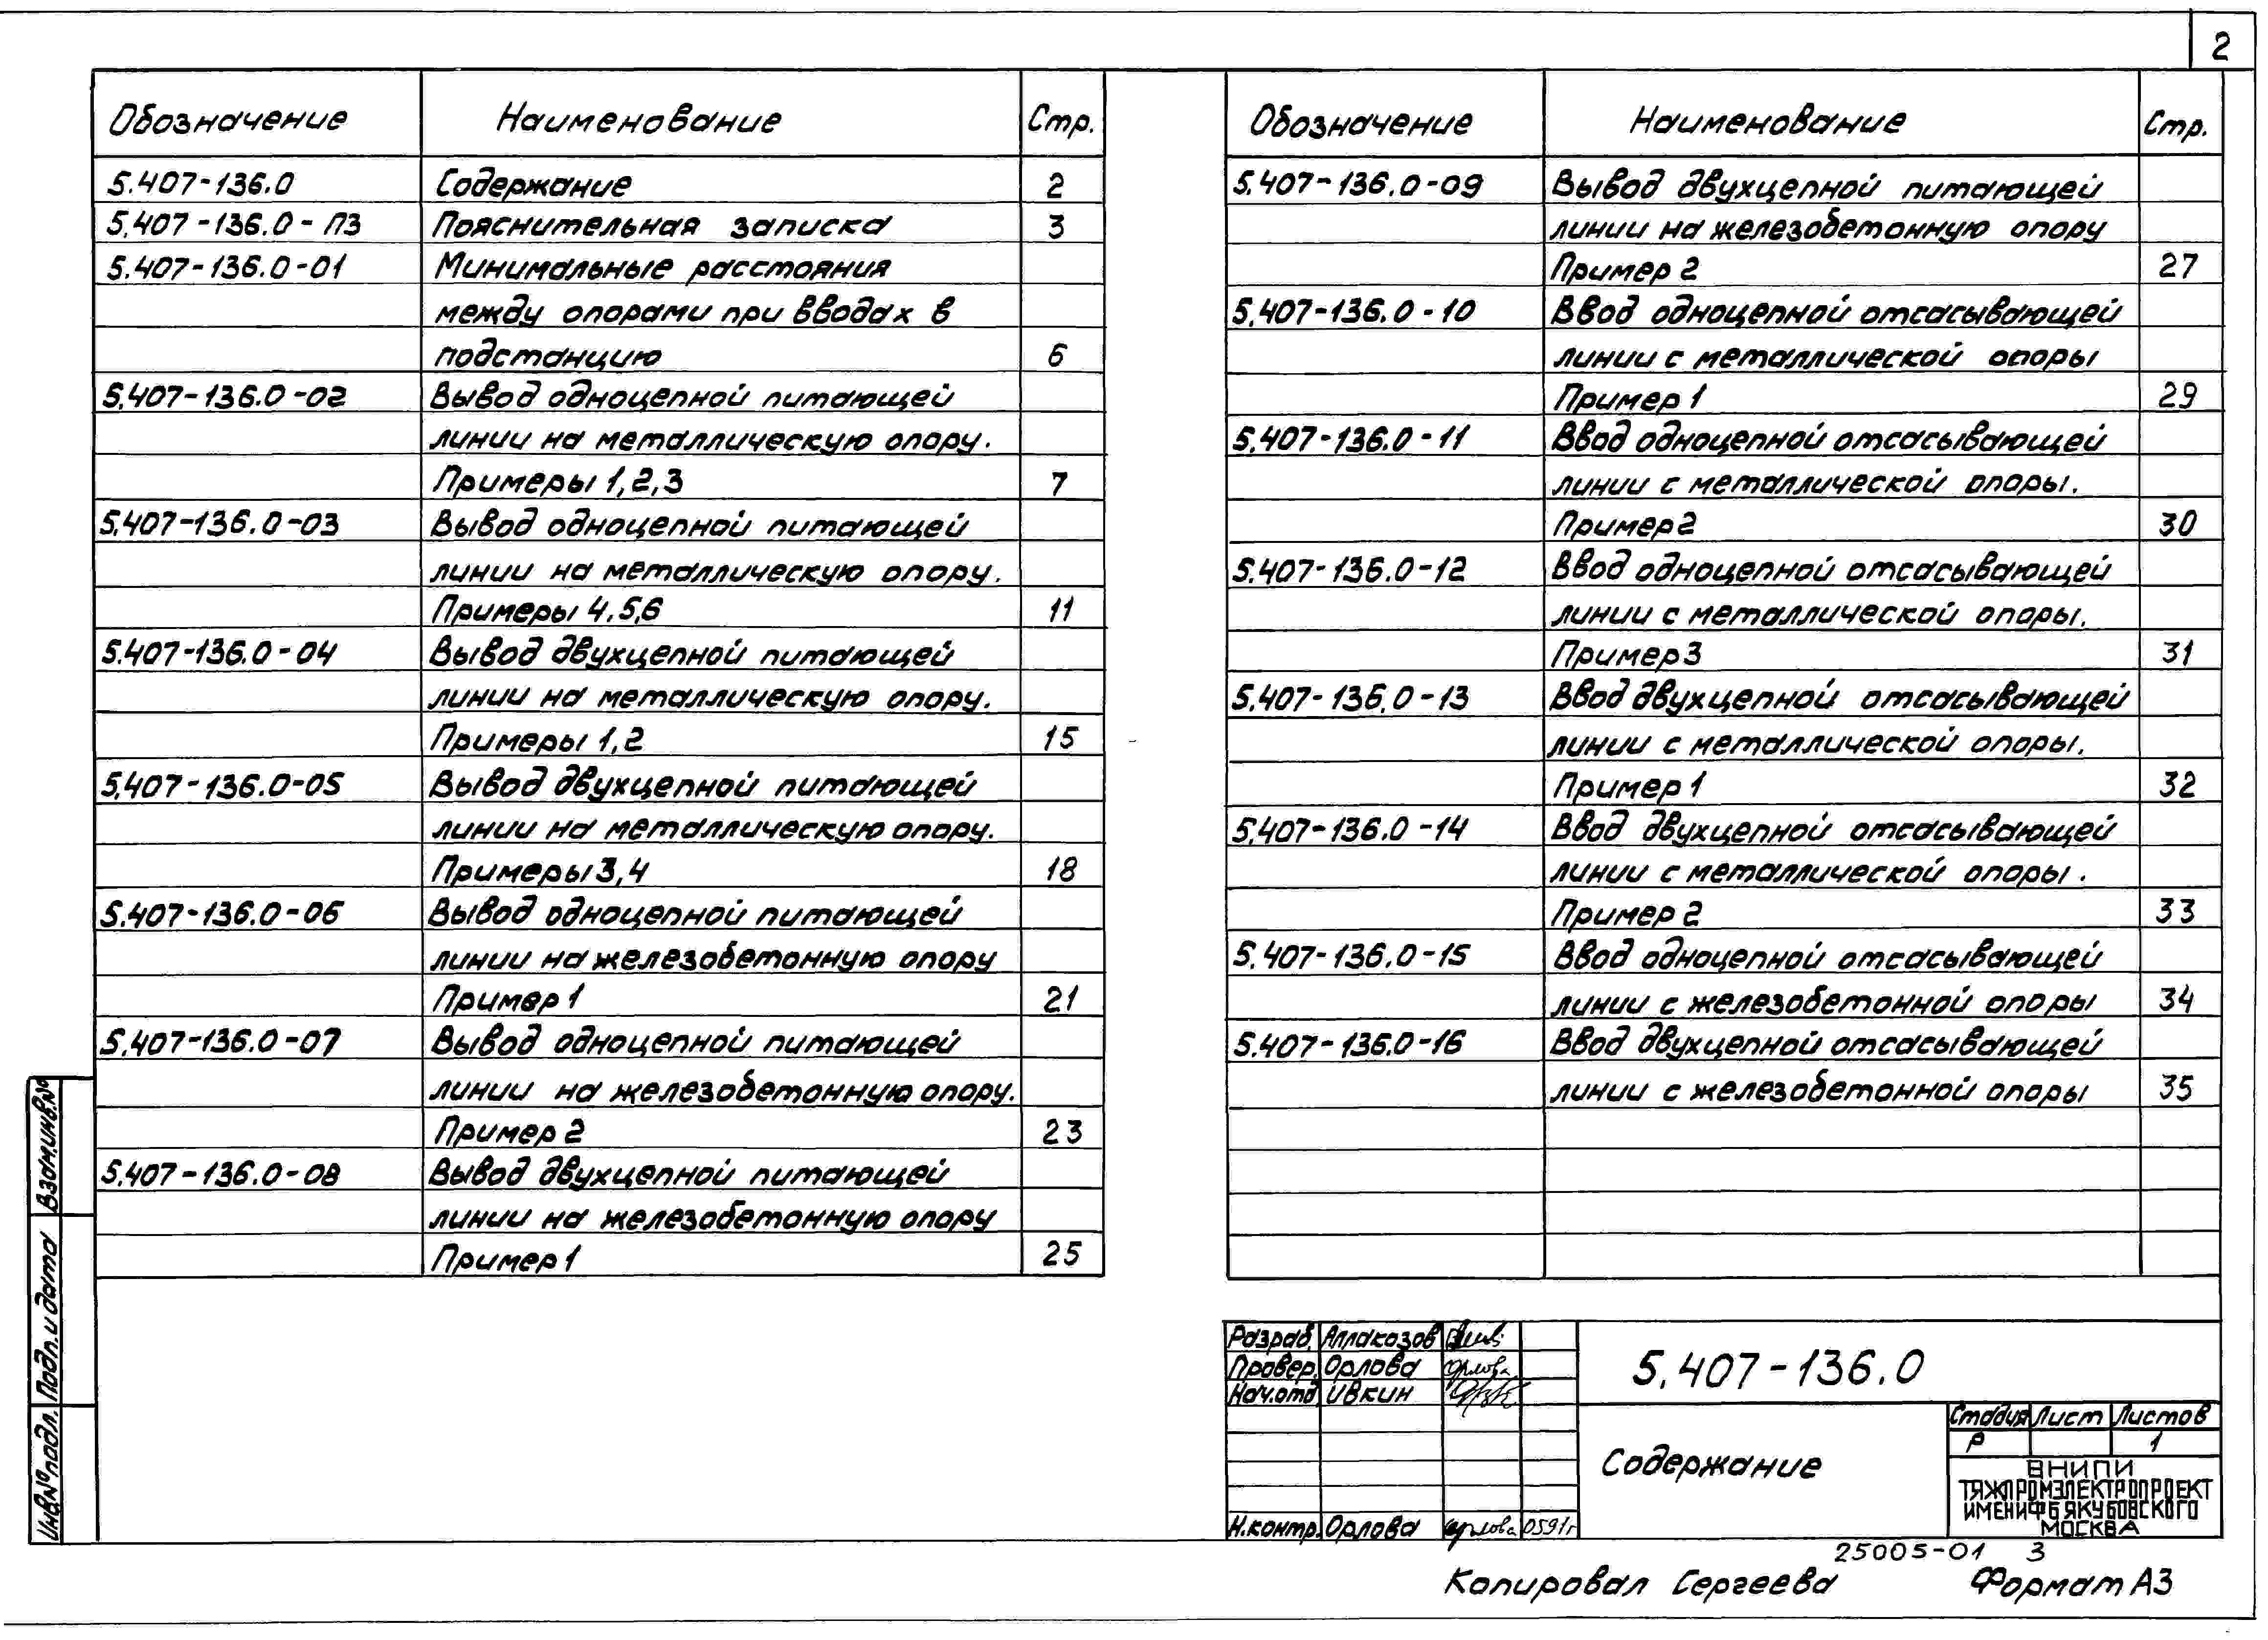 2
Обозначение Наименование Стр.
5.407-136.0 Содержание 2
5.407-136.0-ПЗ Пояснительная записка 3
5.407-136.0-01 Минимальные расстояния
между опорами при вводах в
подстанцию 6
5.407-136.0-02 Вывод одноцепной питающей
линии на металлическую опору.
Примеры 1,2,3 7
5.407-136.0-03 Вывод одноцепной питающей
линии на металлическую опору.
Примеры 4.5,6 11
5.407-136.0-04 Вывод двухцепной питающей
линии на металлическую опору.
Примеры 1,2 15
5.407-136.0-05 Вывод двухцепной питающей
линии на металлическую опору.
Примеры 3,4 18
5.407-136.0-06 Вывод одноцепной питающей
линии на железобетонную опору
Пример 1 21
5.407-136.0-07 Вывод одноцепной питающей
линии на железобетонную опору.
Пример 2 23
5.407-136.0-08 Вывод двухцепной питающей
линии на железобетонную опору
Пример 1 25
Обозначение Наименование Стр.
5.407-136.0-09 Вывод двухцепной питающей
линии на железобетонную опору
Пример 2 27
5.407-136.0-10 Ввод одноцепной отсасывающей
линии с металлической опоры
Пример 1 29
5.407-136.0-11 Ввод одноцепной отсасывающей
линии с металлической опоры.
Пример 2 30
5.407-136.0-12 Ввод одноцепной отсасывающей
линии с металлической опоры.
Пример 3 31
5.407-136.0-13 Ввод двухцепной отсасывающей
линии с металлической опоры.
Пример 1 32
5.407-136.0-14 Ввод двухцепной отсасывающей
линии с металлической опоры.
Пример 2 33
5.407-136.0-15 Ввод одноцепной отсасывающей
линии с железобетонной опоры 34
5.407-136.0-16 Ввод двухцепной отсасывающей
линии с железобетонной опоры 35
Взам.инв.№
Подп. и дата
Инв.№ подл.
Разраб. Аллакозов
Провер. Орлова Орлова
Нач.отд. Ивкин
Н.контр. Орлова Орлова 0591г
5.407-136.0
Содержание
Стадия Лист Листов
Р 1
ВНИПИ
ТЯЖПРОМЭЛЕКТРОПРОЕКТ
ИМЕНИ Ф Б ЯКУБОВСКОГО
МОСКВА
25005-01 3
Копировал Сергеева Формат А3